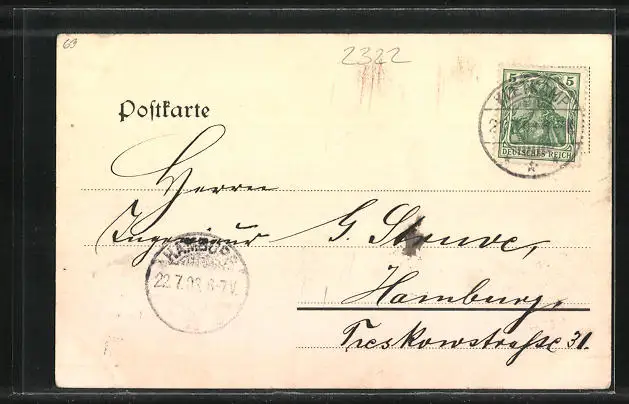 69
2322
Postkarte
5 5
DEUTSCHES REICH
Herrn
Ingenieur G. Stouve,
HAMBURG
22.7.03. 6-7 V.
Hamburg,
Treskowstraße 31.